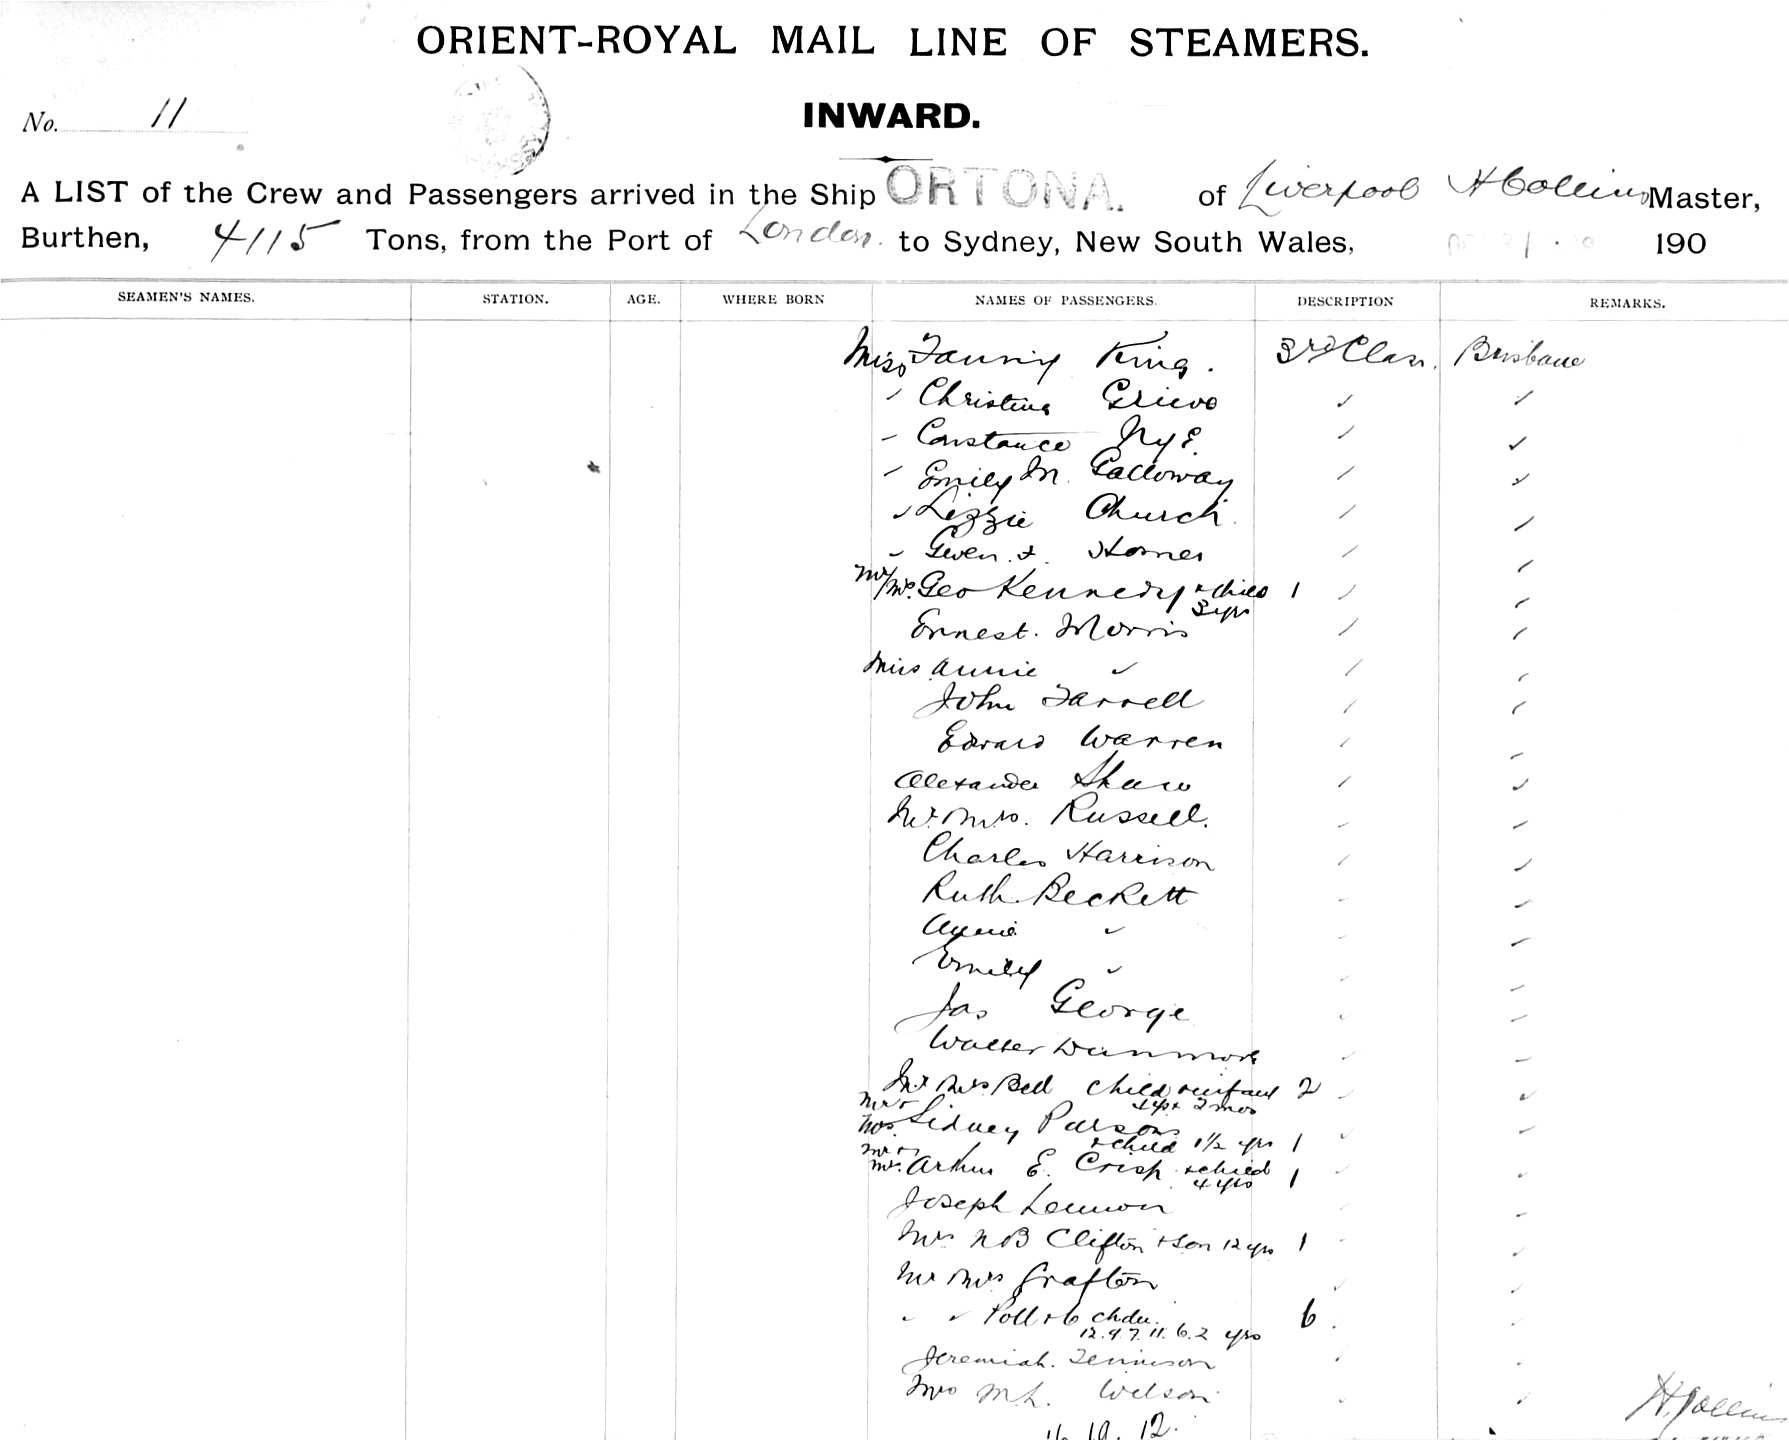 ORIENT-ROYAL MAIL LINE OF STEAMERS.
No. 11
INWARD.
A LIST of the Crew and Passengers arrived in the Ship ORTONA. of Liverpool H Collins Master,
Burthen, 4115 Tons, from the Port of London. to Sydney, New South Wales, 190
SEAMEN'S NAMES. STATION. AGE. WHERE BORN NAMES OF PASSENGERS. DESCRIPTION REMARKS.
Miss Fanny King. 3rd Class. Brisbane
" Christina Grieve " "
" Constance Nye. " "
" Emily M. Galloway " "
" Lizzie Church. " "
" Gwen. Horner " "
Mr/Mrs. Geo Kennedy + child 1 " "
3 yrs
Ernest. Morris " "
Miss Annie " " "
John Farrell " "
Edward Warren " "
Alexander Shaw " "
Mr. Mrs. Russell. " "
Charles Harrison " "
Ruth Beckett " "
Annie " " "
Emily " " "
Jas George " "
Walter Dunmore " "
Mr Mrs Bell child + infant 2 " "
4 yrs 2 mos
Mr + Mrs. Sidney Parsons " "
+ child 1½ yrs 1
Mr + Mrs. Arthur E. Crisp + child " "
4 yrs 1
Joseph Lennon "
Mrs N B Clifton + son 12 yrs 1 " "
Mr Mrs Grafton " "
" " Poll + 6 chdn. 6. "
12. 9. 7. 11. 6. 2 yrs
Jeremiah. Tennison " "
Mrs M. L. Wilson " "
H. Collins
16. 19. 12.